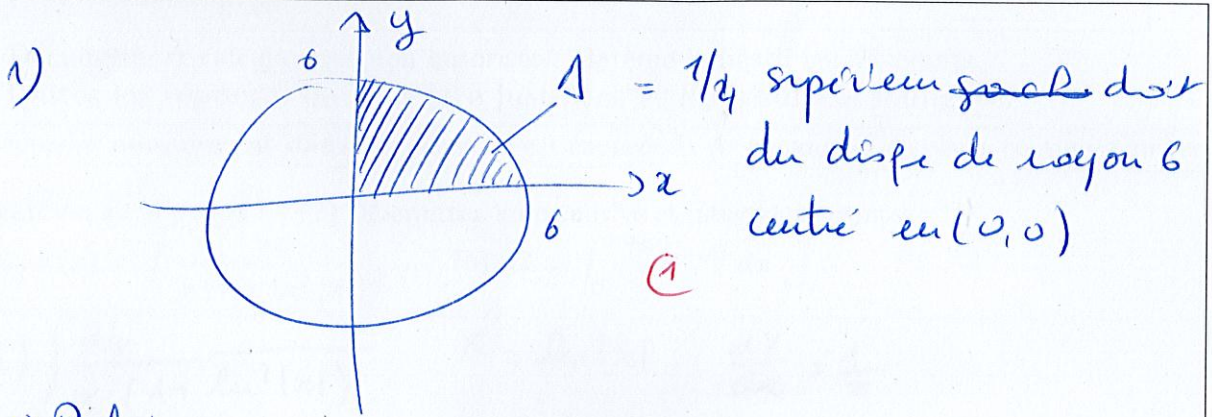 1)
y
6
Δ = 1/4 supérieur droit
du disque de rayon 6
x
centré en (0,0)
6
1